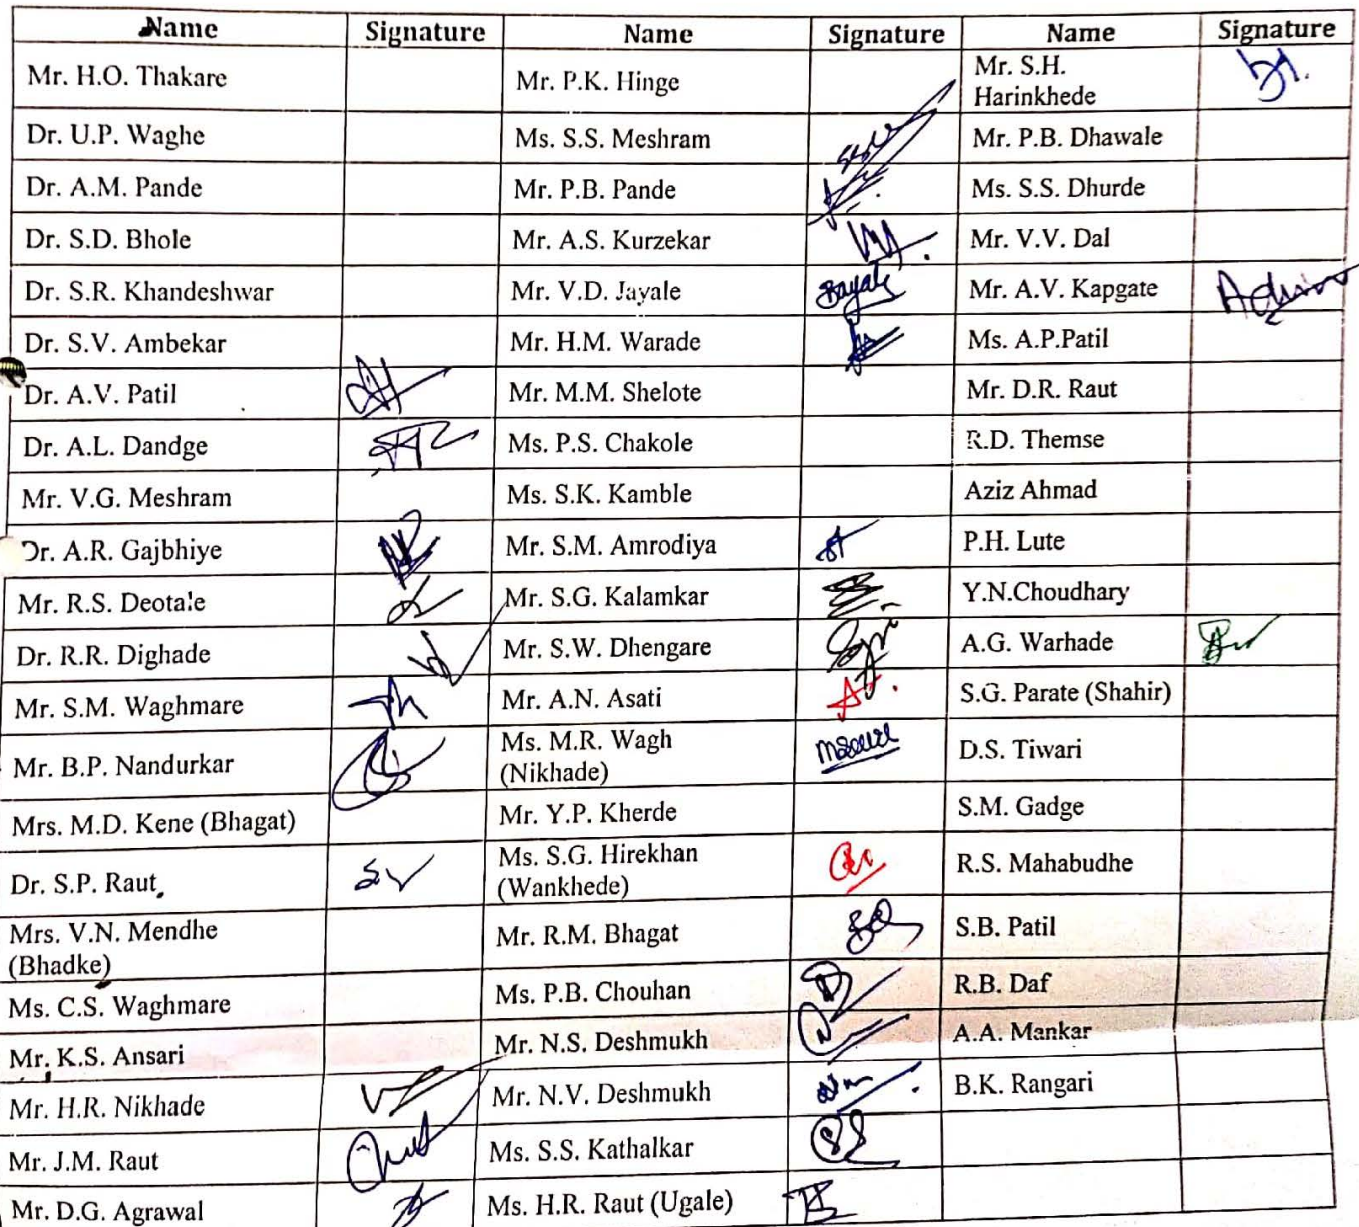 Name Signature Name Signature Name Signature
Mr. H.O. Thakare Mr. P.K. Hinge Mr. S.H.
Harinkhede
Dr. U.P. Waghe Ms. S.S. Meshram Mr. P.B. Dhawale
Dr. A.M. Pande Mr. P.B. Pande Ms. S.S. Dhurde
Dr. S.D. Bhole Mr. A.S. Kurzekar Mr. V.V. Dal
Dr. S.R. Khandeshwar Mr. V.D. Jayale Mr. A.V. Kapgate
Dr. S.V. Ambekar Mr. H.M. Warade Ms. A.P.Patil
Dr. A.V. Patil Mr. M.M. Shelote Mr. D.R. Raut
Dr. A.L. Dandge Ms. P.S. Chakole R.D. Themse
Mr. V.G. Meshram Ms. S.K. Kamble Aziz Ahmad
Dr. A.R. Gajbhiye Mr. S.M. Amrodiya P.H. Lute
Mr. R.S. Deotale Mr. S.G. Kalamkar Y.N.Choudhary
Dr. R.R. Dighade Mr. S.W. Dhengare A.G. Warhade
Mr. S.M. Waghmare Mr. A.N. Asati S.G. Parate (Shahir)
Mr. B.P. Nandurkar Ms. M.R. Wagh
(Nikhade) D.S. Tiwari
Mrs. M.D. Kene (Bhagat) Mr. Y.P. Kherde S.M. Gadge
Dr. S.P. Raut Ms. S.G. Hirekhan
(Wankhede) R.S. Mahabudhe
Mrs. V.N. Mendhe
(Bhadke) Mr. R.M. Bhagat S.B. Patil
Ms. C.S. Waghmare Ms. P.B. Chouhan R.B. Daf
Mr. K.S. Ansari Mr. N.S. Deshmukh A.A. Mankar
Mr. H.R. Nikhade Mr. N.V. Deshmukh B.K. Rangari
Mr. J.M. Raut Ms. S.S. Kathalkar
Mr. D.G. Agrawal Ms. H.R. Raut (Ugale)